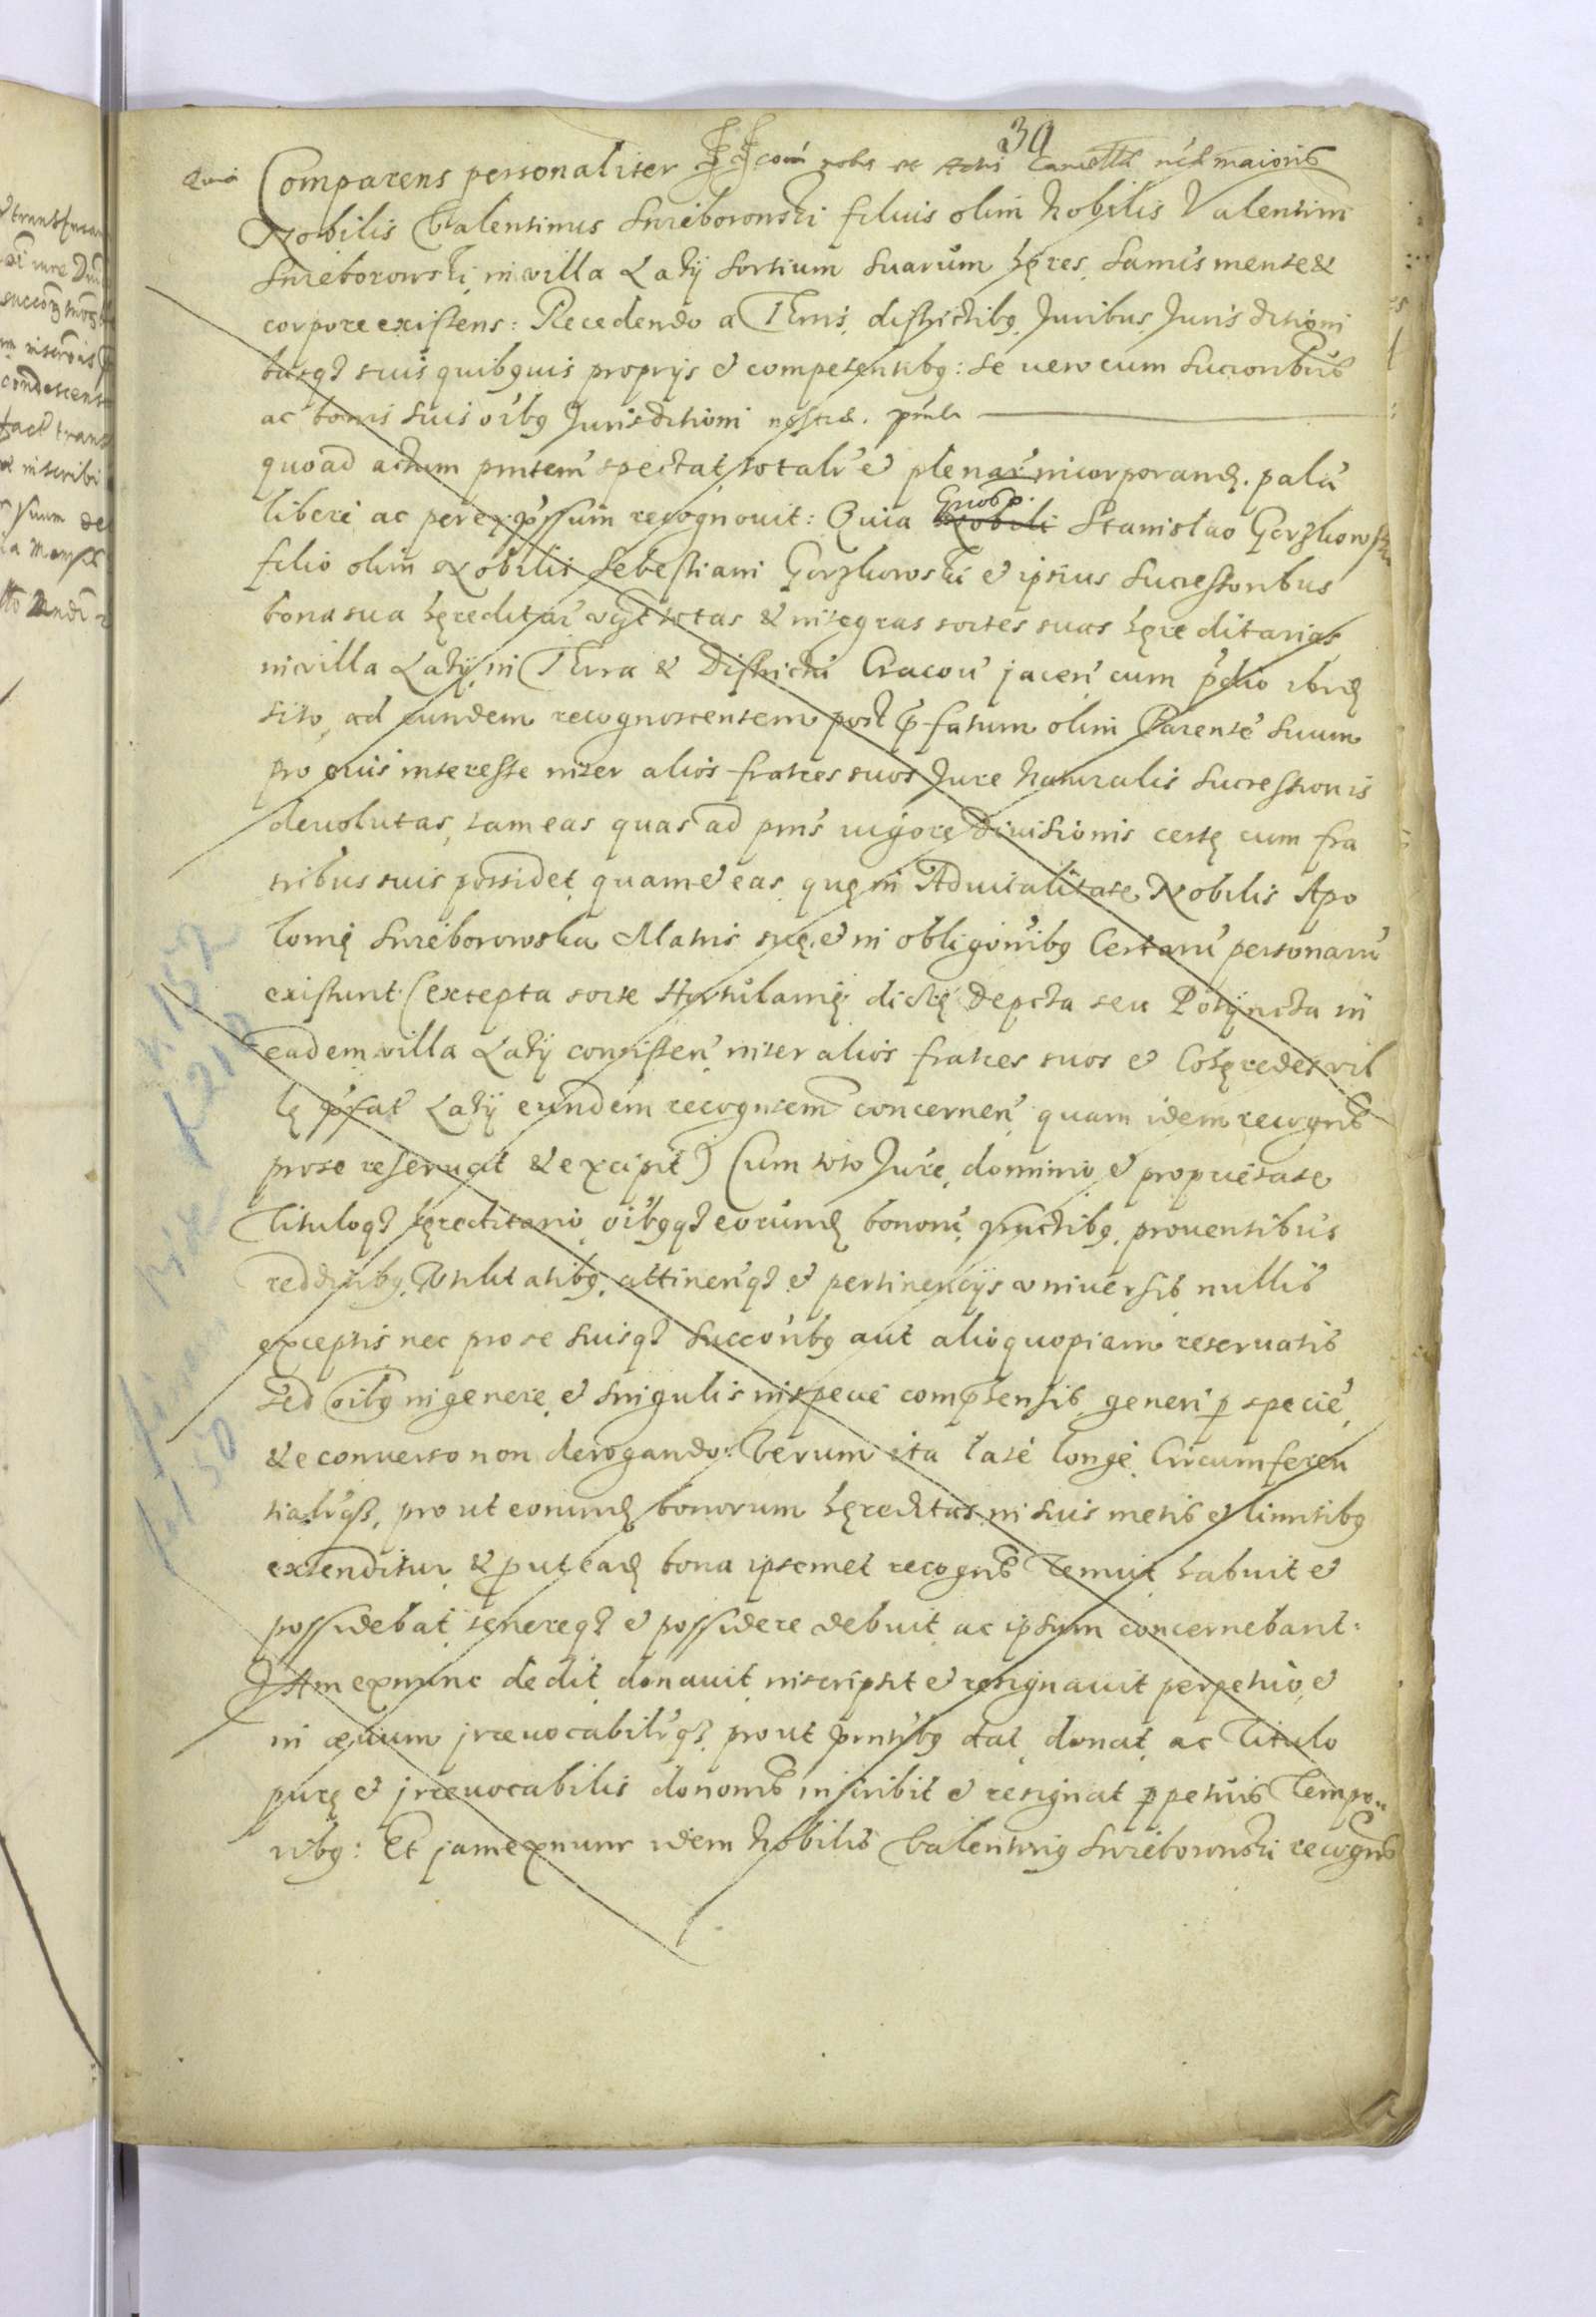 30
Quia Comparens personaliter corã nobis et Actis Cancellã nr̃ã maioris
Nobilis Valentinus Swieborowski filius olim Nobilis Valentini
Swieborowski in villa Łazÿ sortium suarum hęres Sanus mente &
corpore existens: Recedendo a Terris, districtibꝰ Juribus Jurisditioni
busqꝫ suis quibꝰuis proprijs et competentibꝰ: se uero cum Succoribus
ac bonis suis oĩbꝰ Jurisditioni nostrae.
quoad actum pñtem spectat totalr̃ et plenar̃ incorporandę. palã
liberè ac per expr̃ssum recognouit: Quia Nobili Gnoso Stanislao Gorzkowski
filio olim Nobilis Sebestiani Gorzkowski et ipsius Successoribus
bona sua hęreditar̃ vſt totas & integras sortes suas hęreditarias
in villa Łazÿ in Terra & Districtu Cracoũ jaceñ cum p̃dio ibidę
sito, ad eundem recognoscentem post p̃fatum olim Parentẽ suum
pro eius interesse inter alios fratres suos Jure naturalis Successionis
deuolutas, tam eas quas ad pñs uigore Diuisionis certę cum fra
tribus suis possidet, quam et eas, quę in Aduitalitate Nobilis Apo
lonię Swieborowska Matris suę, et in obligõnibꝰ Certarũ personarũ
existunt (excepta sorte Hortulanię dictę Depcta seu Potÿncta in
eadem villa Łazÿ consisteñ inter alios fratres suos et Cohęredes vil
lę p̃fat Łazÿ eundem recognitem concerneñ, quam idem recogñs
pro se reseruat & excipit) Cum toto Jure, dominio, et proprietate
Tituloqꝫ hęreditario, oĩbꝰqꝫ eorundę bonorũ, fructibꝰ, prouentibus
redditibꝰ, Vtilitatibꝰ, attineñqꝫ et pertinencijs vniuersis nullis
exceptis nec pro se suisqꝫ Succõribꝰ aut alio quopiam reseruatis
Sed oĩbꝰ in genere, et singulis in specie comp̃hensis, generi p speciẽ
& e conuerso non derogando: Verum ita latè longè Circumferen
tialr̃qꝫ, prout eorundę bonorum hęreditas in suis metis et limitibꝰ
extenditur, & put eadę bona ipsemet recogñs Tenuit habuit et
possidebat, tenereqꝫ et possidere debuit, ac ipsum concernebant:
Jam exnunc dedit, donauit, inscripsit et resignauit perpetuò, et
in aeuum jreuocabilr̃qꝫ, prout pñtibꝰ dat, donat, ac Titulo
purę et jreuocabilis donõnis inscribit et resignat ppetuis Tempo
ribꝰ: Et jam exnunc idem Nobilis Valentinꝰ Swieborowski recogñs